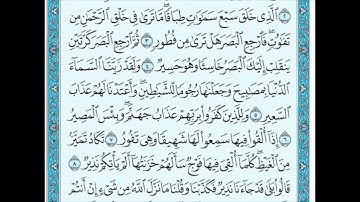 ٢ ٱلَّذِى خَلَقَ سَبْعَ سَمَٰوَٰتٍ طِبَاقًا مَّا تَرَىٰ فِى خَلْقِ ٱلرَّحْمَٰنِ مِن
تَفَٰوُتٍ فَٱرْجِعِ ٱلْبَصَرَ هَلْ تَرَىٰ مِن فُطُورٍ ٣ ثُمَّ ٱرْجِعِ ٱلْبَصَرَ كَرَّتَيْنِ
يَنقَلِبْ إِلَيْكَ ٱلْبَصَرُ خَاسِئًا وَهُوَ حَسِيرٌ ٤ وَلَقَدْ زَيَّنَّا ٱلسَّمَآءَ
ٱلدُّنْيَا بِمَصَٰبِيحَ وَجَعَلْنَٰهَا رُجُومًا لِّلشَّيَٰطِينِ وَأَعْتَدْنَا لَهُمْ عَذَابَ
ٱلسَّعِيرِ ٥ وَلِلَّذِينَ كَفَرُوا۟ بِرَبِّهِمْ عَذَابُ جَهَنَّمَ وَبِئْسَ ٱلْمَصِيرُ
٦ إِذَآ أُلْقُوا۟ فِيهَا سَمِعُوا۟ لَهَا شَهِيقًا وَهِىَ تَفُورُ ٧ تَكَادُ تَمَيَّزُ
مِنَ ٱلْغَيْظِ كُلَّمَآ أُلْقِىَ فِيهَا فَوْجٌ سَأَلَهُمْ خَزَنَتُهَآ أَلَمْ يَأْتِكُمْ نَذِيرٌ
٨ قَالُوا۟ بَلَىٰ قَدْ جَآءَنَا نَذِيرٌ فَكَذَّبْنَا وَقُلْنَا مَا نَزَّلَ ٱللَّهُ مِن شَىْءٍ إِنْ أَنتُمْ